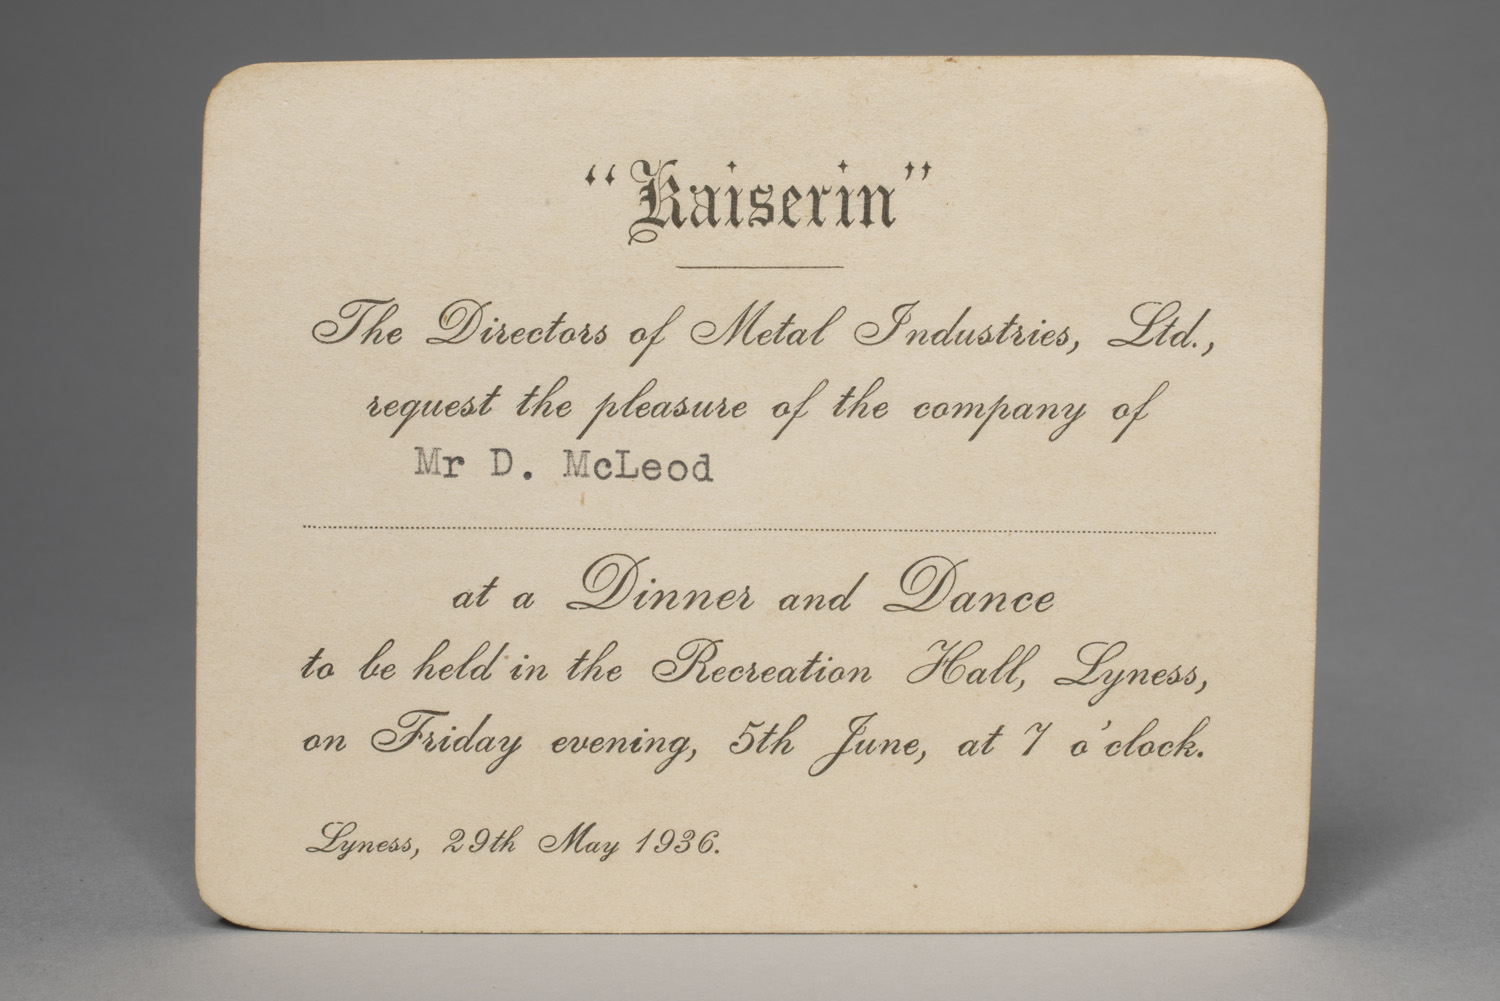 "Kaiserin"
The Directors of Metal Industries, Ltd.,
request the pleasure of the company of
Mr D. McLeod
at a Dinner and Dance
to be held in the Recreation Hall, Lyness,
on Friday evening, 5th June, at 7 o'clock.
Lyness, 29th May 1936.